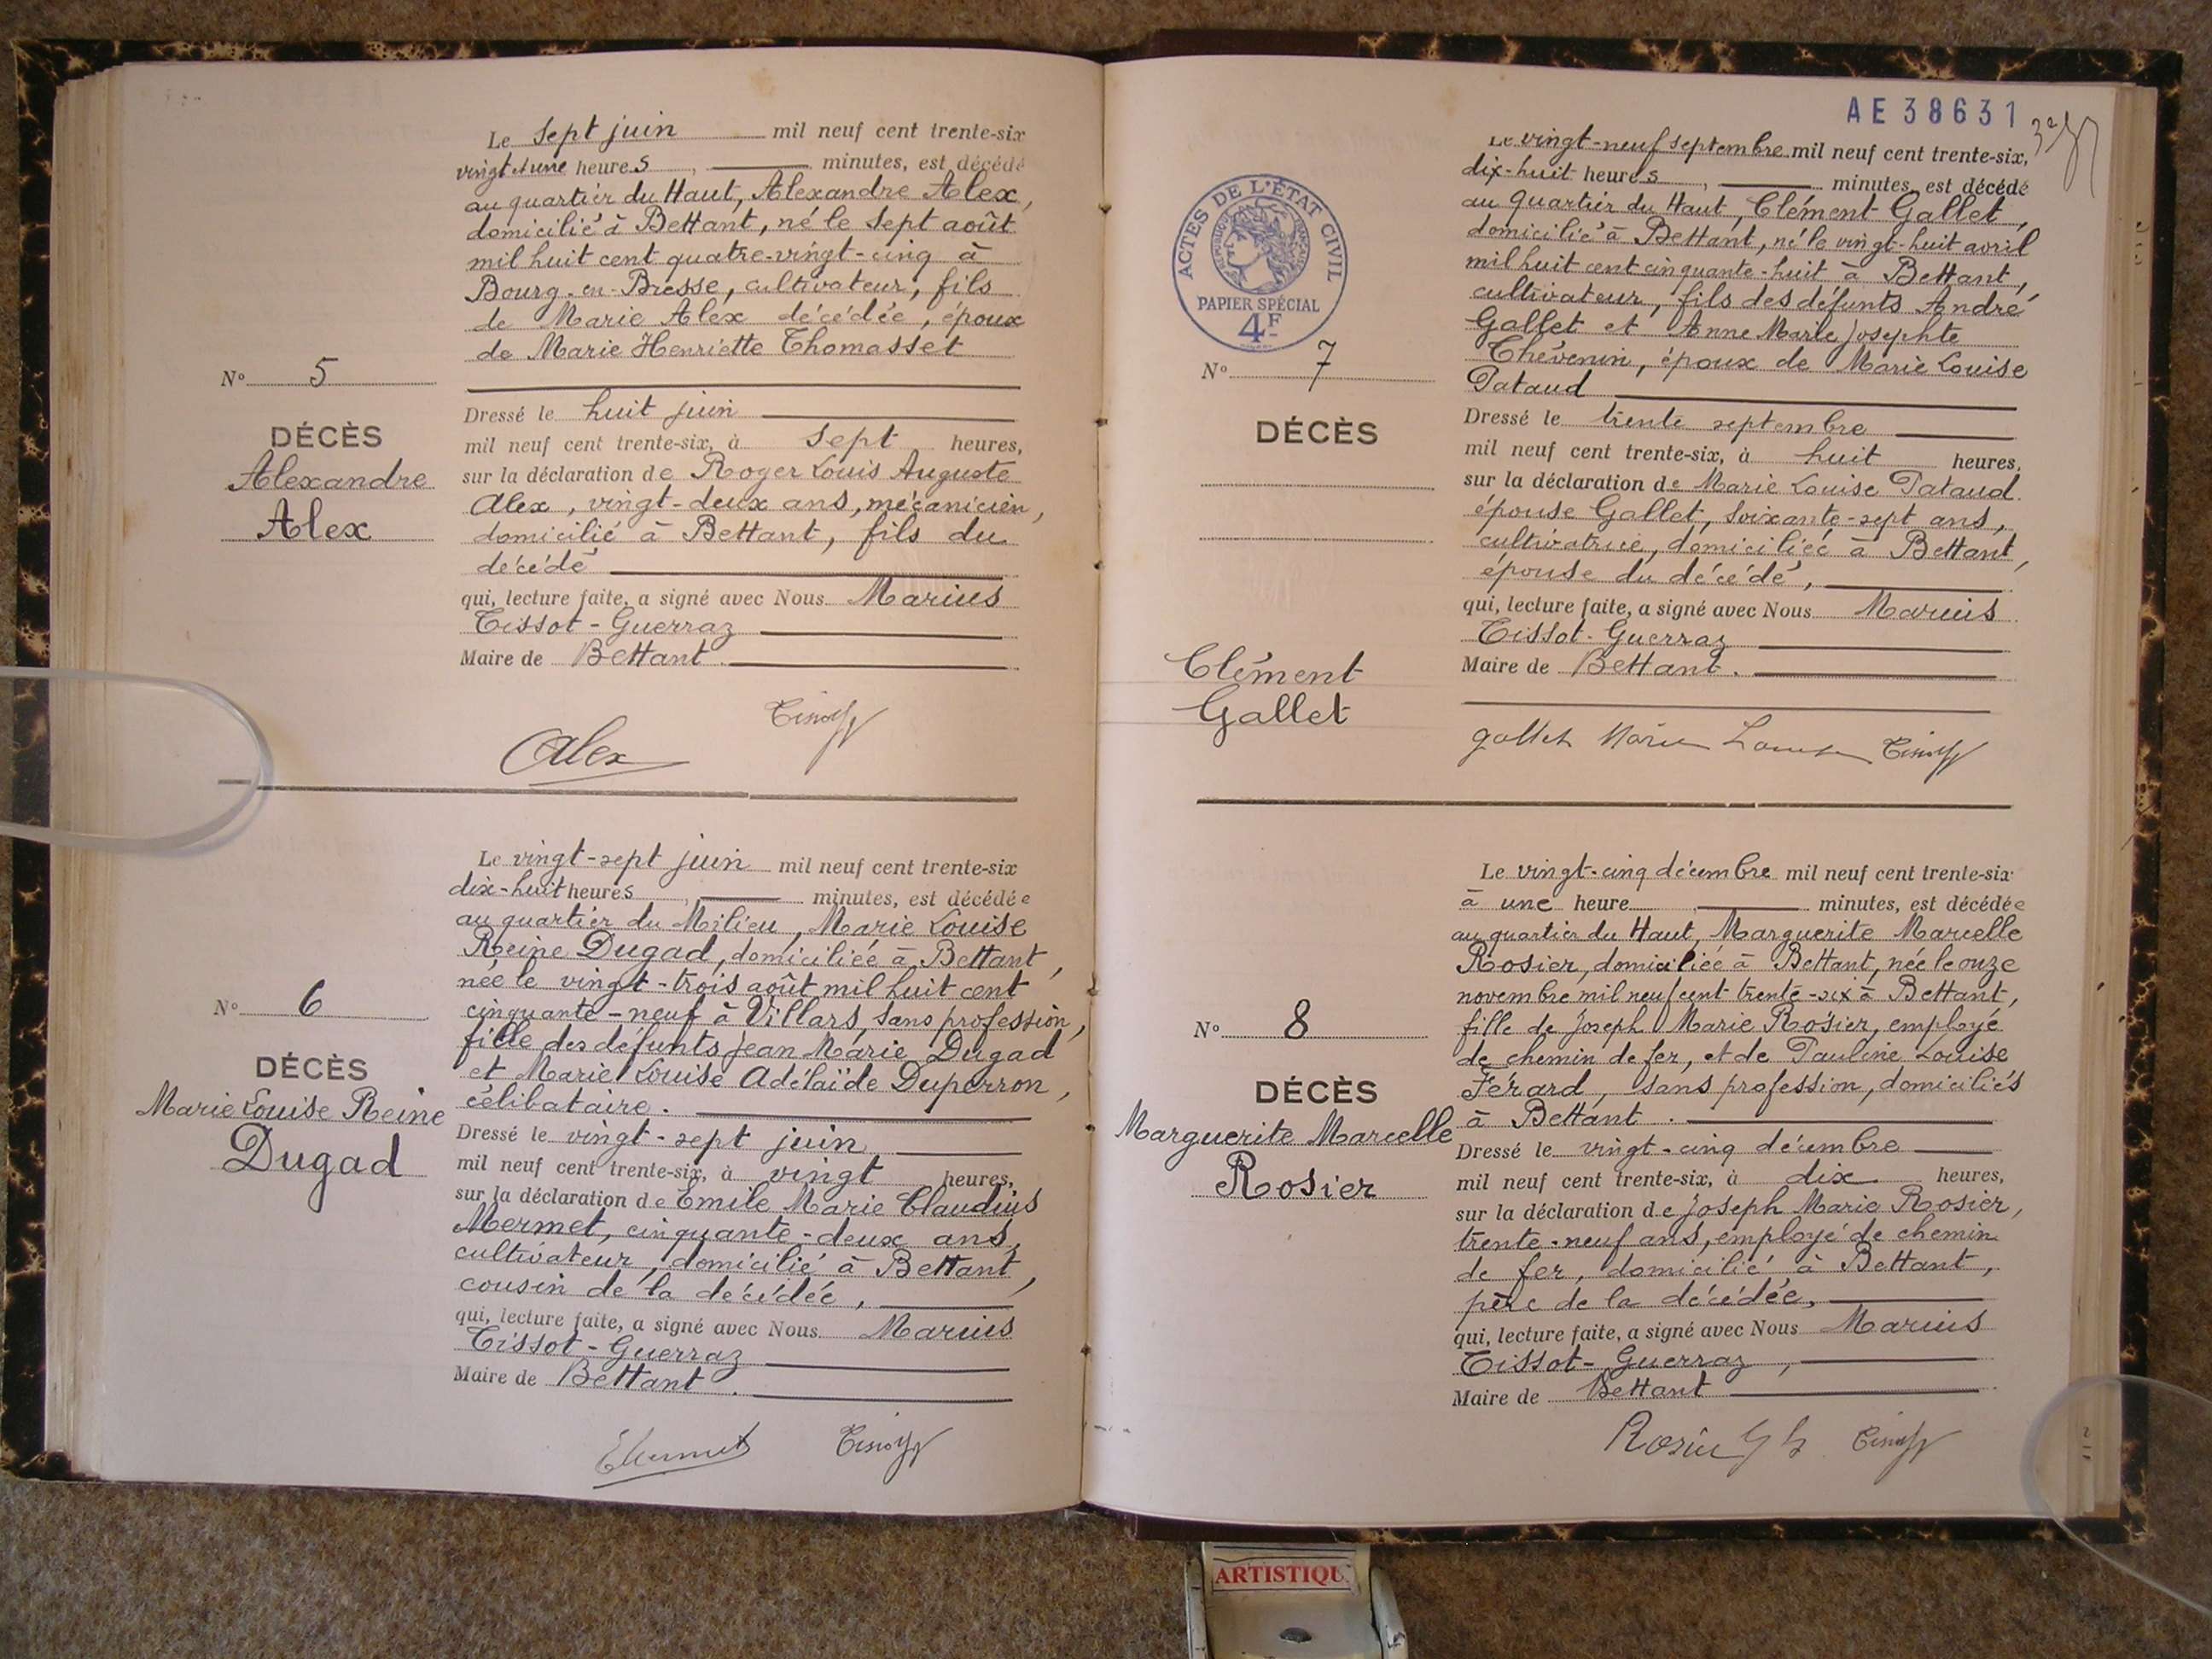 Le sept juin mil neuf cent trente-six
vingt et une heures, minutes, est décédé
au quartier du Haut, Alexandre Alex,
domicilié à Bettant, né le sept août
mil huit cent quatre-vingt-cinq à
Bourg-en-Bresse, cultivateur, fils
de Marie Alex décédée, époux
de Marie Henriette Thomasset
N° 5
DÉCÈS
Alexandre
Alex
Dressé le huit juin
mil neuf cent trente-six, à sept heures,
sur la déclaration de Roger Louis Auguste
Alex, vingt-deux ans, mécanicien,
domicilié à Bettant, fils du
décédé
qui, lecture faite, a signé avec Nous Marius
Tissot-Guerraz
Maire de Bettant.
Alex
Le vingt-sept juin mil neuf cent trente-six
dix-huit heures, minutes, est décédée
au quartier du Milieu, Marie Louise
Reine Dugad, domiciliée à Bettant,
née le vingt-trois août mil huit cent
cinquante-neuf à Villars, sans profession,
fille des défunts Jean Marie Dugad
et Marie Louise Adélaïde Duperron,
célibataire.
N° 6
DÉCÈS
Marie Louise Reine
Dugad
Dressé le vingt-sept juin
mil neuf cent trente-six, à vingt heures,
sur la déclaration de Emile Marie Claudius
Mermet, cinquante-deux ans,
cultivateur, domicilié à Bettant,
cousin de la décédée,
qui, lecture faite, a signé avec Nous Marius
Tissot-Guerraz
Maire de Bettant.
EMermet
AE 38631
ACTES DE L'ÉTAT CIVIL
RÉPUBLIQUE FRANÇAISE
PAPIER SPÉCIAL
4F
Le vingt-neuf septembre mil neuf cent trente-six,
dix-huit heures, minutes, est décédé
au quartier du Haut, Clément Gallet,
domicilié à Bettant, né le vingt-huit avril
mil huit cent cinquante-huit à Bettant,
cultivateur, fils des défunts André
Gallet et Anne Marie Josephte
Thévenin, époux de Marie Louise
Pataud
N° 7
DÉCÈS
Clément
Gallet
Dressé le trente septembre
mil neuf cent trente-six, à huit heures,
sur la déclaration de Marie Louise Pataud
épouse Gallet, soixante-sept ans,
cultivatrice, domiciliée à Bettant,
épouse du décédé,
qui, lecture faite, a signé avec Nous Marius
Tissot-Guerraz
Maire de Bettant.
gallet Marie Louise
Le vingt-cinq décembre mil neuf cent trente-six
à une heure, minutes, est décédée
au quartier du Haut, Marguerite Marcelle
Rosier, domiciliée à Bettant, née le onze
novembre mil neuf cent trente-six à Bettant,
fille de Joseph Marie Rosier, employé
de chemin de fer, et de Pauline Louise
Férard, sans profession, domiciliés
à Bettant.
N° 8
DÉCÈS
Marguerite Marcelle
Rosier
Dressé le vingt-cinq décembre
mil neuf cent trente-six, à dix heures,
sur la déclaration de Joseph Marie Rosier,
trente-neuf ans, employé de chemin
de fer, domicilié à Bettant,
père de la décédée,
qui, lecture faite, a signé avec Nous Marius
Tissot-Guerraz,
Maire de Bettant
Rosier
ARTISTIQU